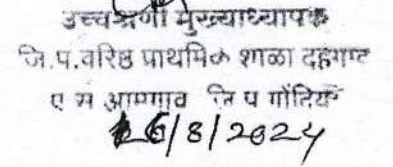 उच्चश्रेणी मुख्याध्यापक
जि.प.वरिष्ठ प्राथमिक शाळा दहेगाव
ए स आमगाव जि प गोंदिया
16/8/2024